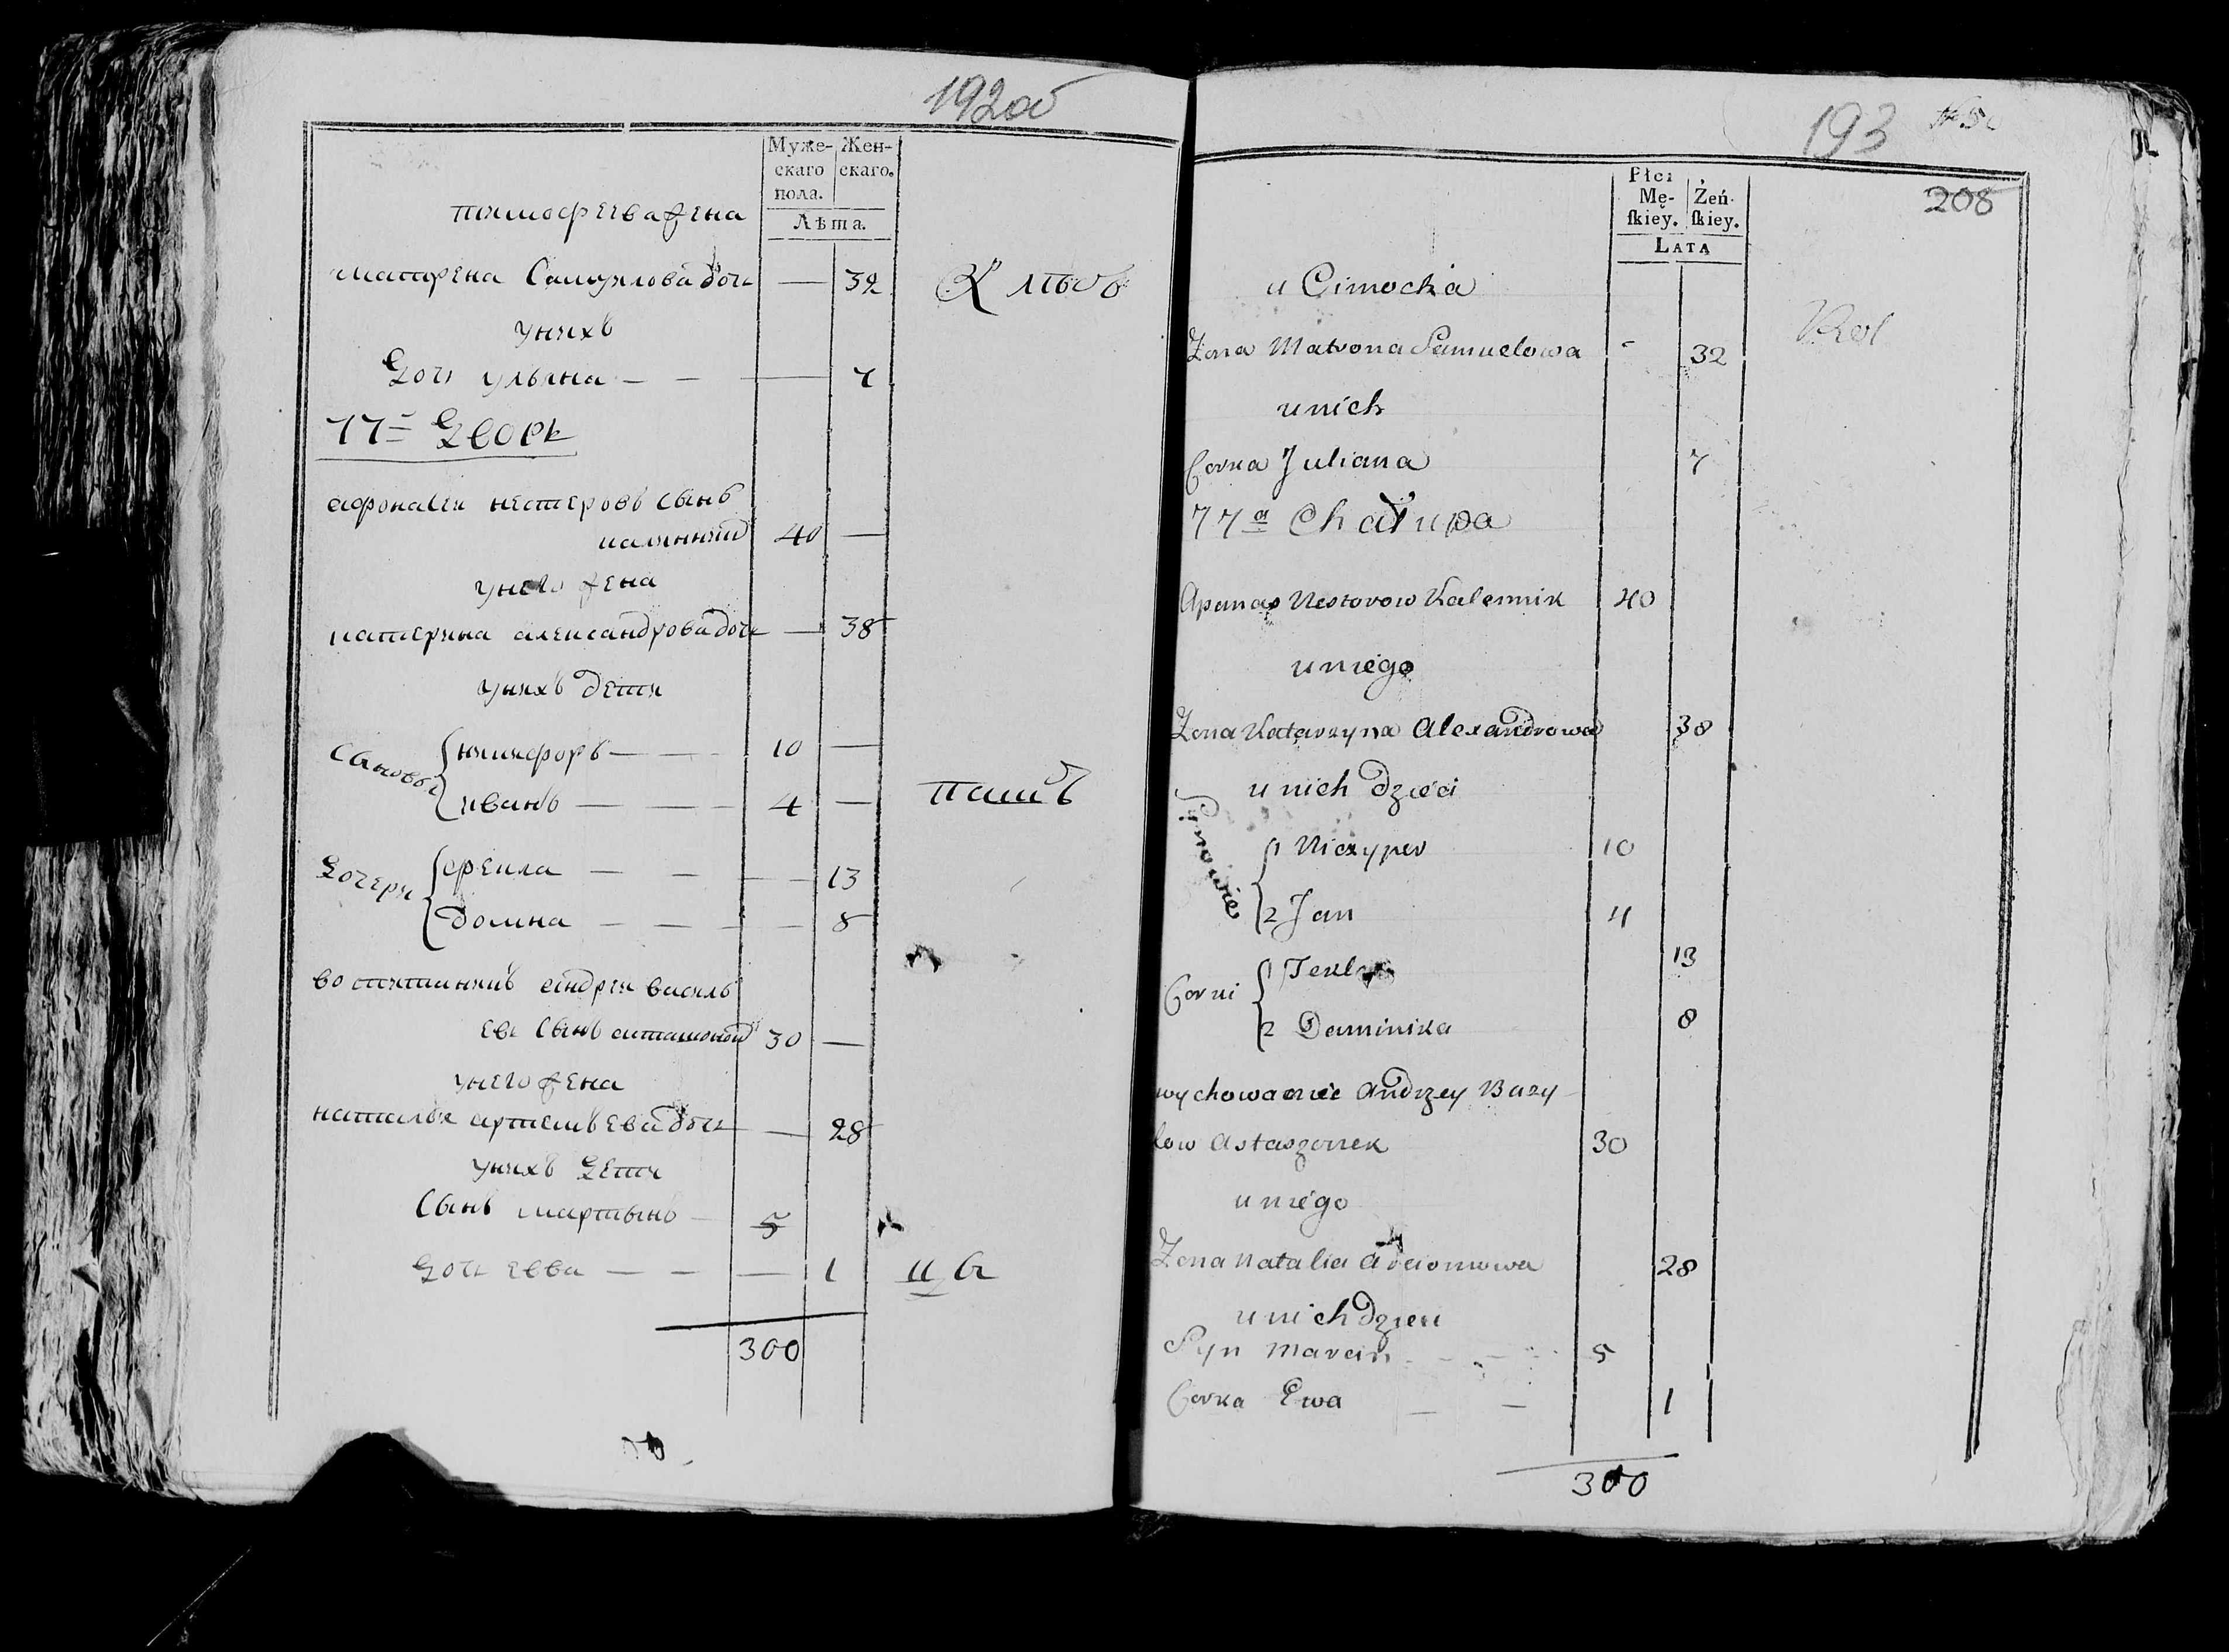 192об
Муже-
скаго
пола.
Жен-
скаго.
Лѣта.
тимофеева жена
матрена Самуилова дочь — 32
унихъ
Дочь ульяна — — — 7
77й Дворъ
афонасеи нестеровъ сынъ
40 —
унего жена
катерина александрова дочь — 38
унихъ дети
Сыновья
никифоръ — — 10 —
иванъ — — — 4 —
Дочери
фекла — — — 13
домна — — — — 8
воспитанникъ андреи василь
евъ сынъ 30 —
унего жена
наталья артемьева дочь — 28
унихъ Дети
Сынъ мартынъ — 5
Дочь евва — — — 1
300
193
208
Płci
Mę-
ſkiey.
Żeń-
ſkiey.
LATA
u Cimocha
Zona Matrona Samuelowa - 32
u nich
Corka Juliana 7
77a Chałupa
Apanas Nestorow Kalennik 40
u niego
Zona Katarzyna Alexandrowa 38
u nich dzieci
Synowie
1 Niczyper 10
2 Jan 4
Corki
1 Tekla 13
2 Daminika 8
wychowaniec Andrzey Bazy-
low Astaszonek 30
u niego
Zona Natalia Arciomowa 28
u nich dzieci
Syn Marcin - - - 5
Corka Ewa — — 1
300